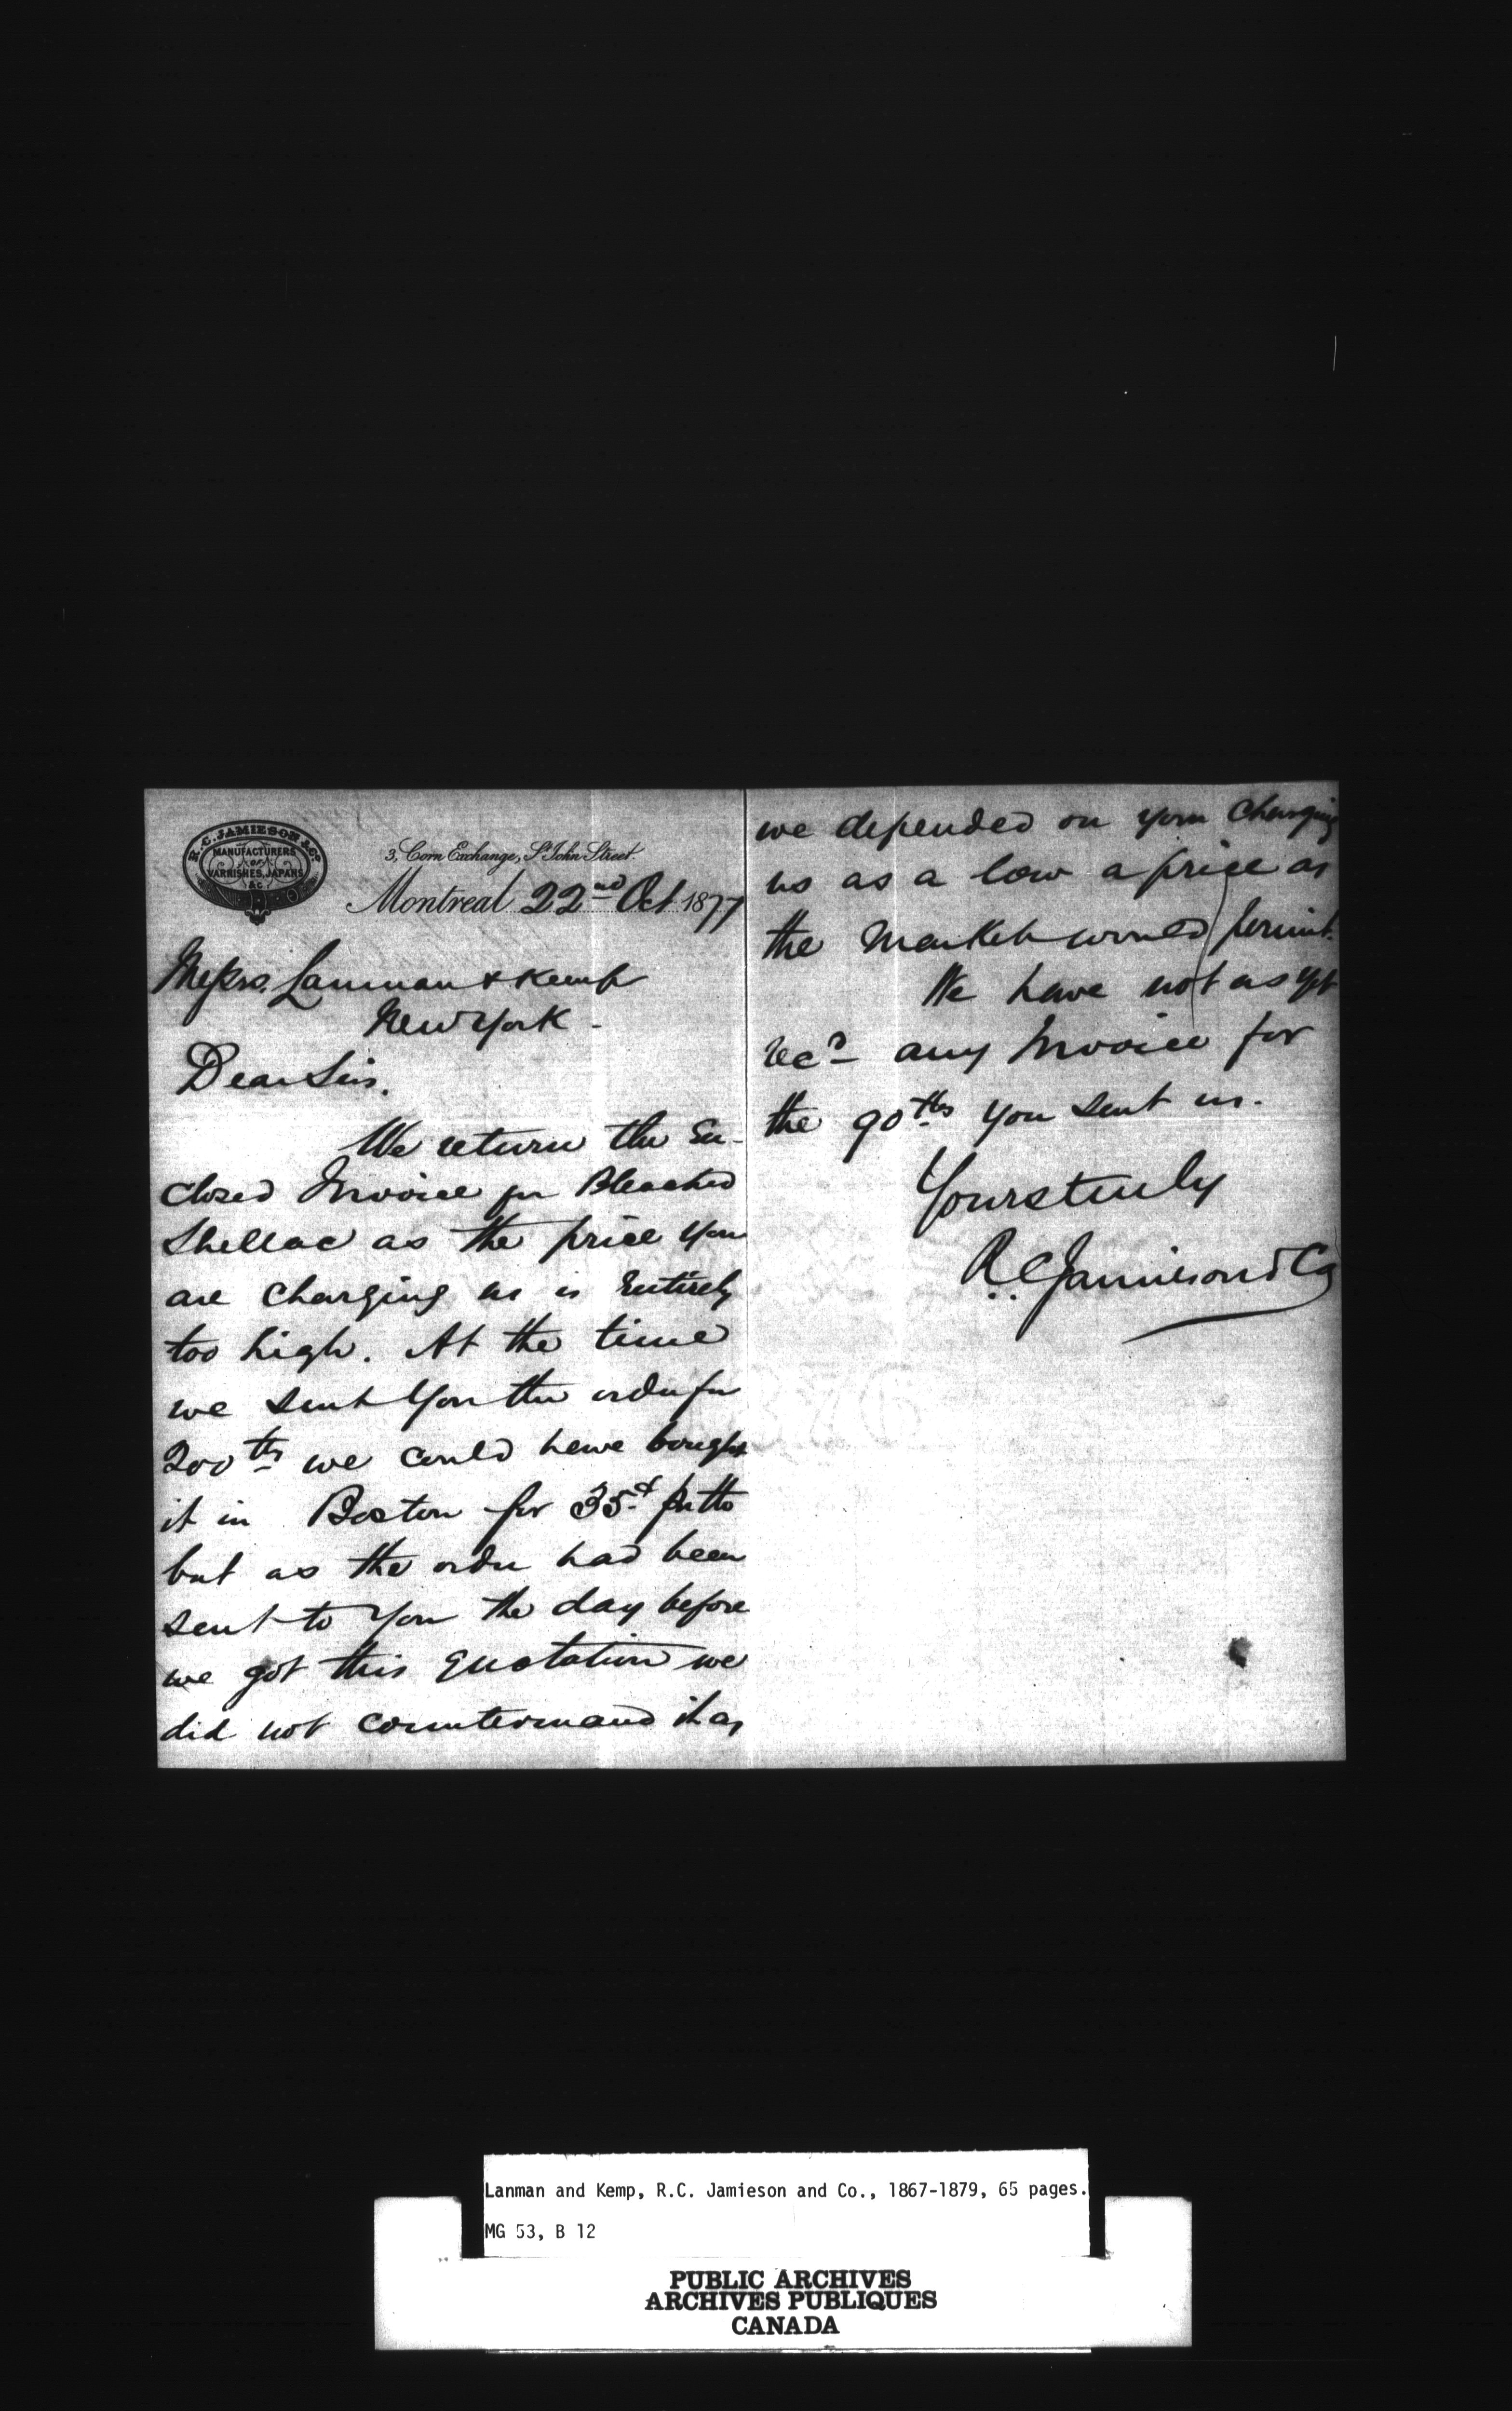 R. C. JAMIESON & Co.
MANUFACTURERS
OF
VARNISHES, JAPANS
&c.
3, Corn Exchange, St. John Street.
Montreal 22nd Oct 1877
Messrs. Lanman & Kemp
New York -
Dear Sirs,
We return the En-
closed Invoice for Bleached
Shellac as the price you
are charging us is Entirely
too high. At the time
we sent you the order for
200 lbs we could have bought
it in Boston for 35¢ per lb
but as the order had been
sent to you the day before
we got this Quotation we
did not countermand it as
we depended on your charging
us as a low a price as
the Market would permit.
We have not as yet
Recd any Invoice for
the 90 lbs you sent us.
Yours truly
R. C. Jamieson & Co
Lanman and Kemp, R.C. Jamieson and Co., 1867-1879, 65 pages.
MG 53, B 12
PUBLIC ARCHIVES
ARCHIVES PUBLIQUES
CANADA